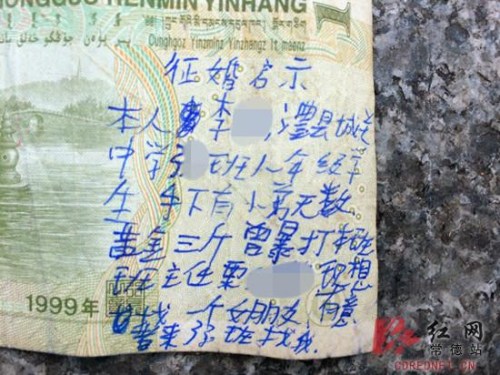 HONGGUO RENMIN YINHANG
1
Yinzminz Yinzhangz It maenz
征婚启示
本人李 ,澧县城关
中学 班八年级学
生 手下有小弟无数
黄金三斤曾暴打
班主任粟 现想
找一个女朋友 有意
者来 班找我
1999年
红网
常德站